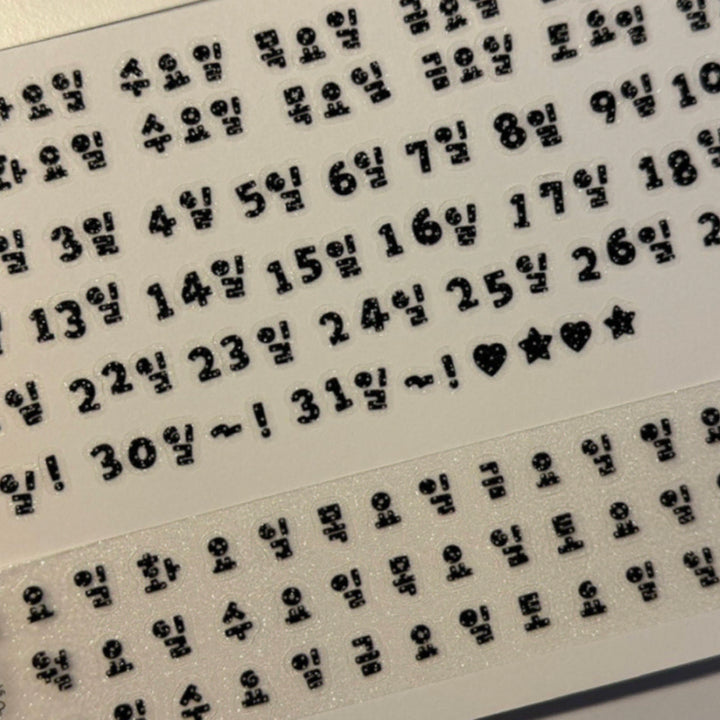 요일 수요일 목요일 금요일
화요일 수요일 목요일 금요일 토요일
일 3일 4일 5일 6일 7일 8일 9일 10
13일 14일 15일 16일 17일 18일
일 22일 23일 24일 25일 26일 2
일! 30일~! 31일~!♥★♥★
요 일 화 요 일 목 요 일 금 요 일 일 요
요 일 수 요 일 목 요 일 토 요 일
일 수 요 일 금 요 일 토 요 일 일